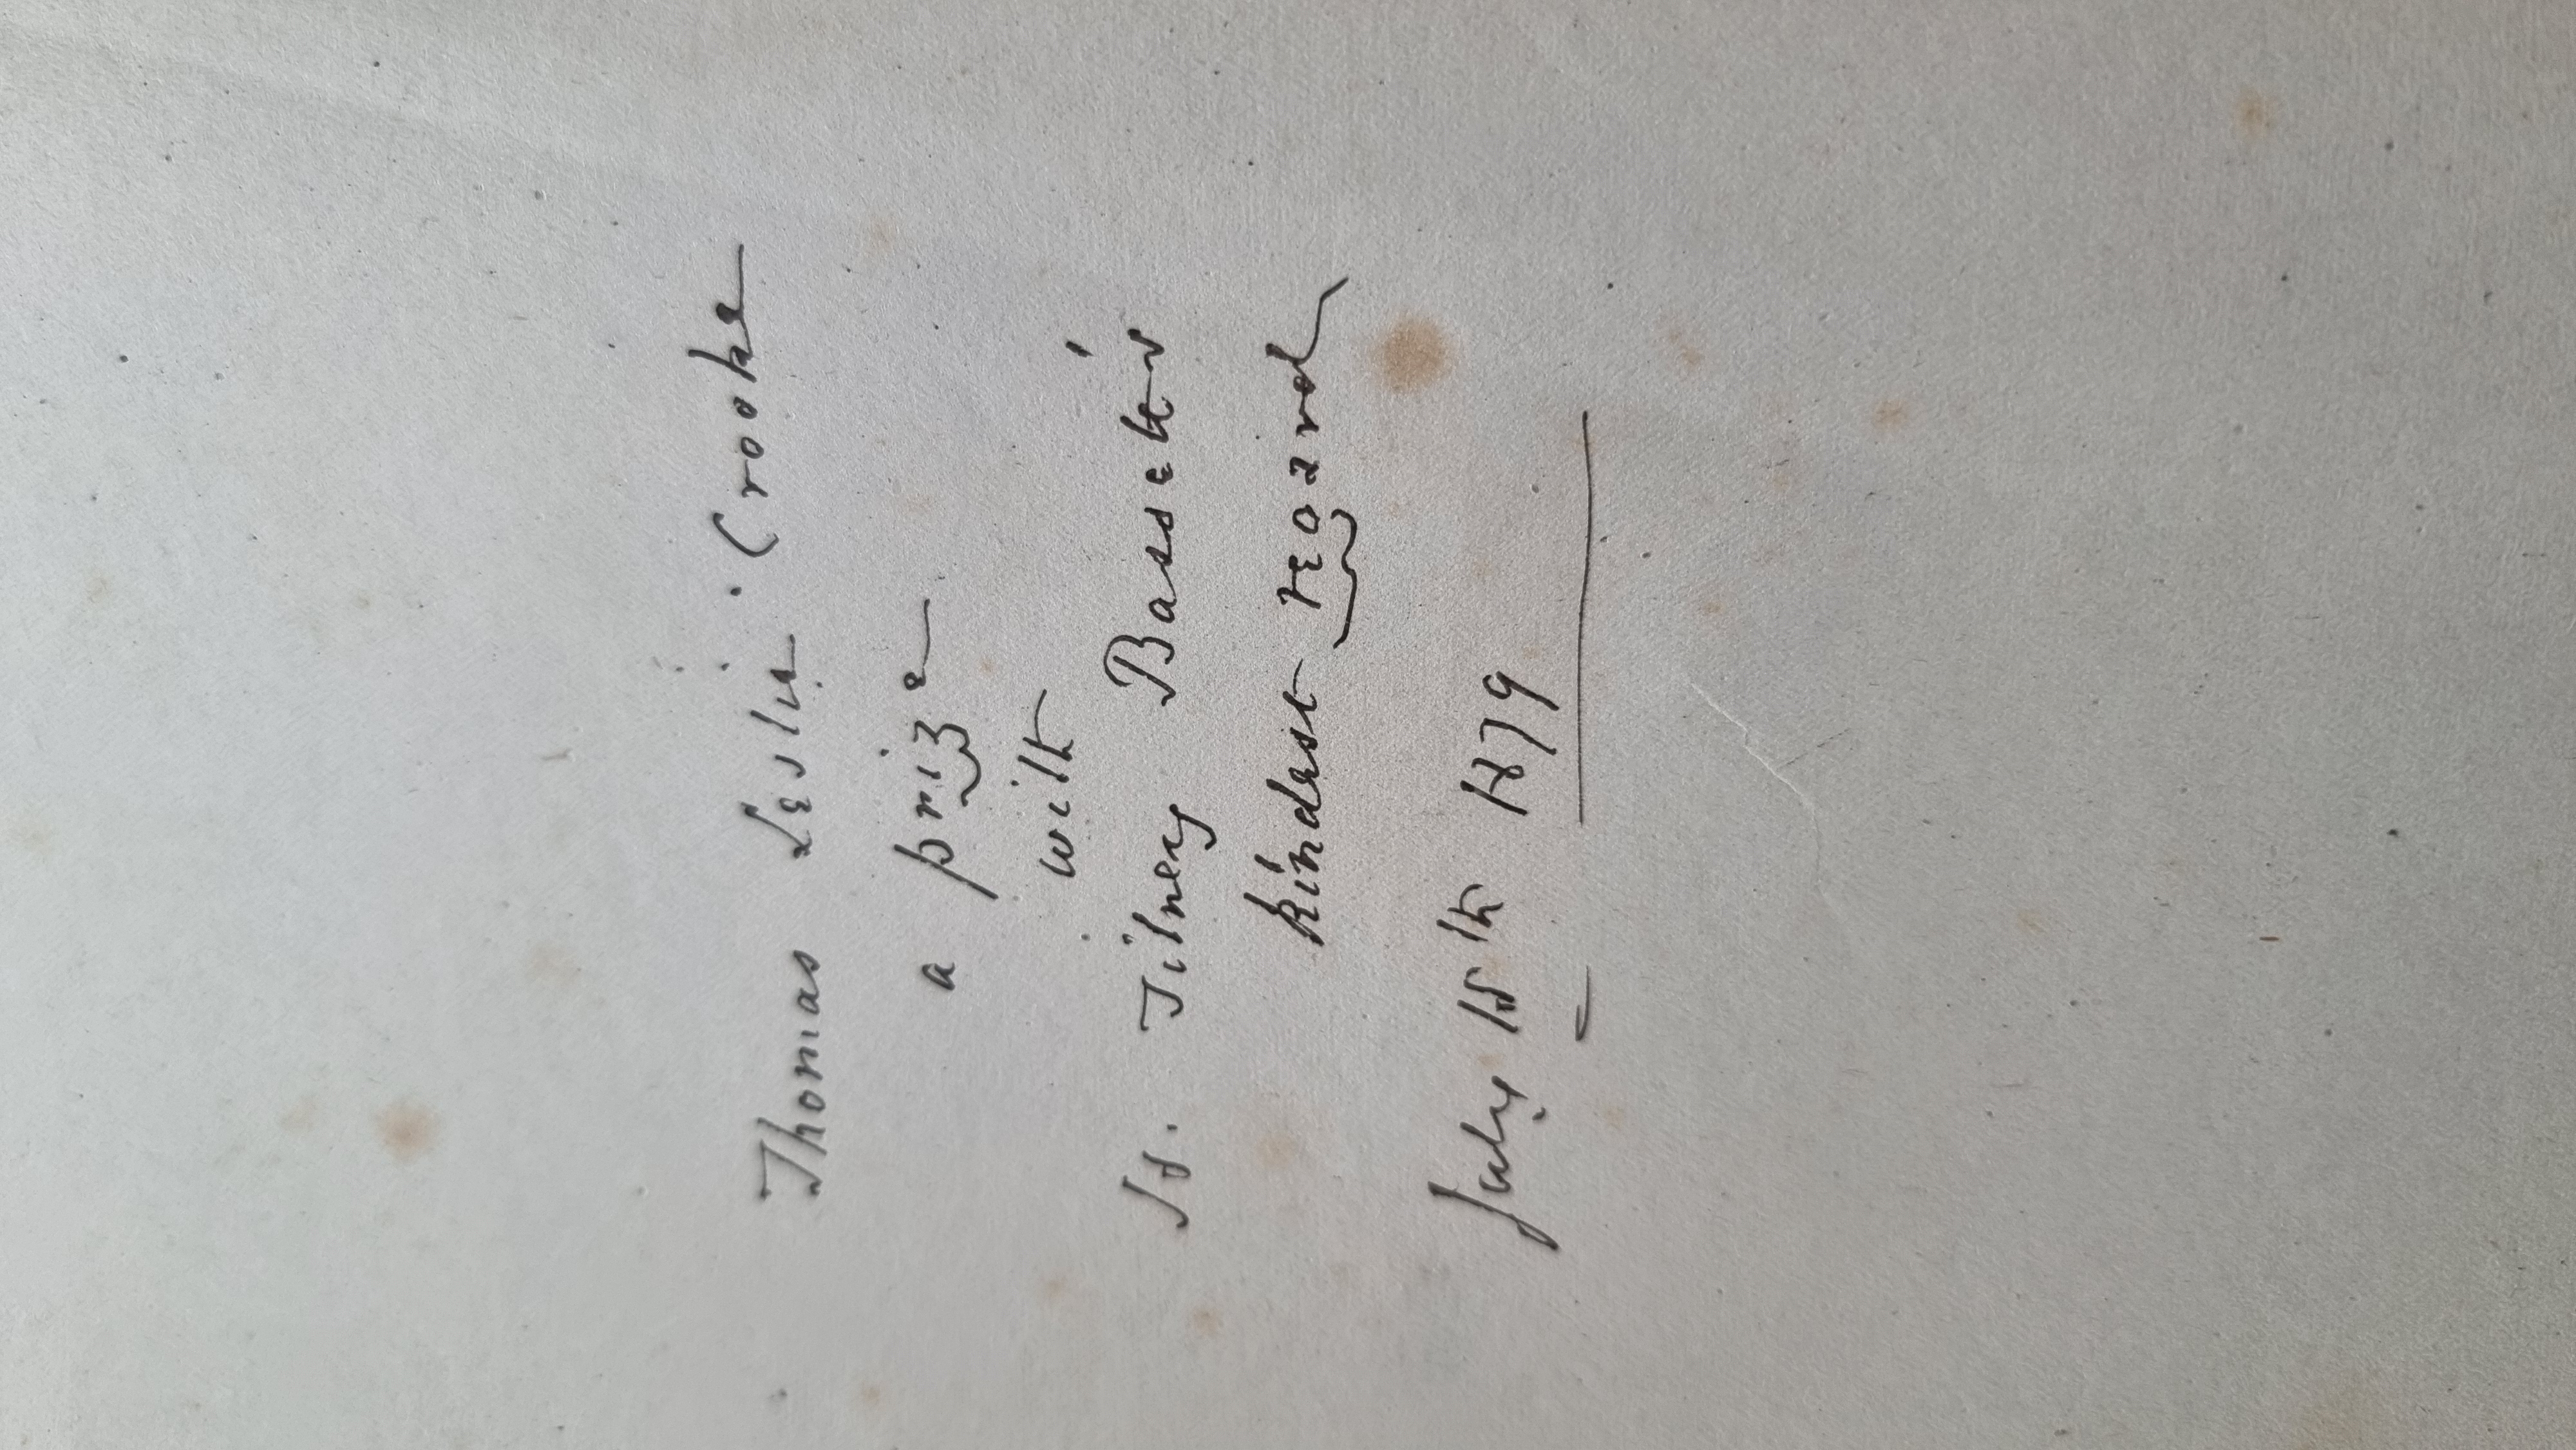 Thomas Leslie Crooke
a prize
with
Fd. Tilney Bassett's
kindest regard
July 18th 1879